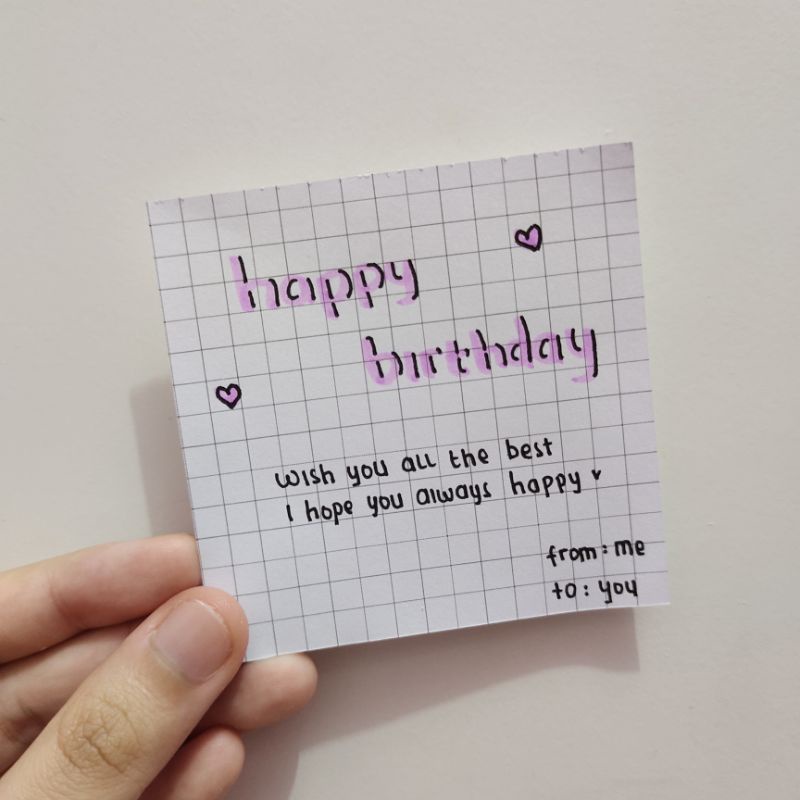 happy
birthday
wish you all the best
I hope you always happy
from: me
to: you